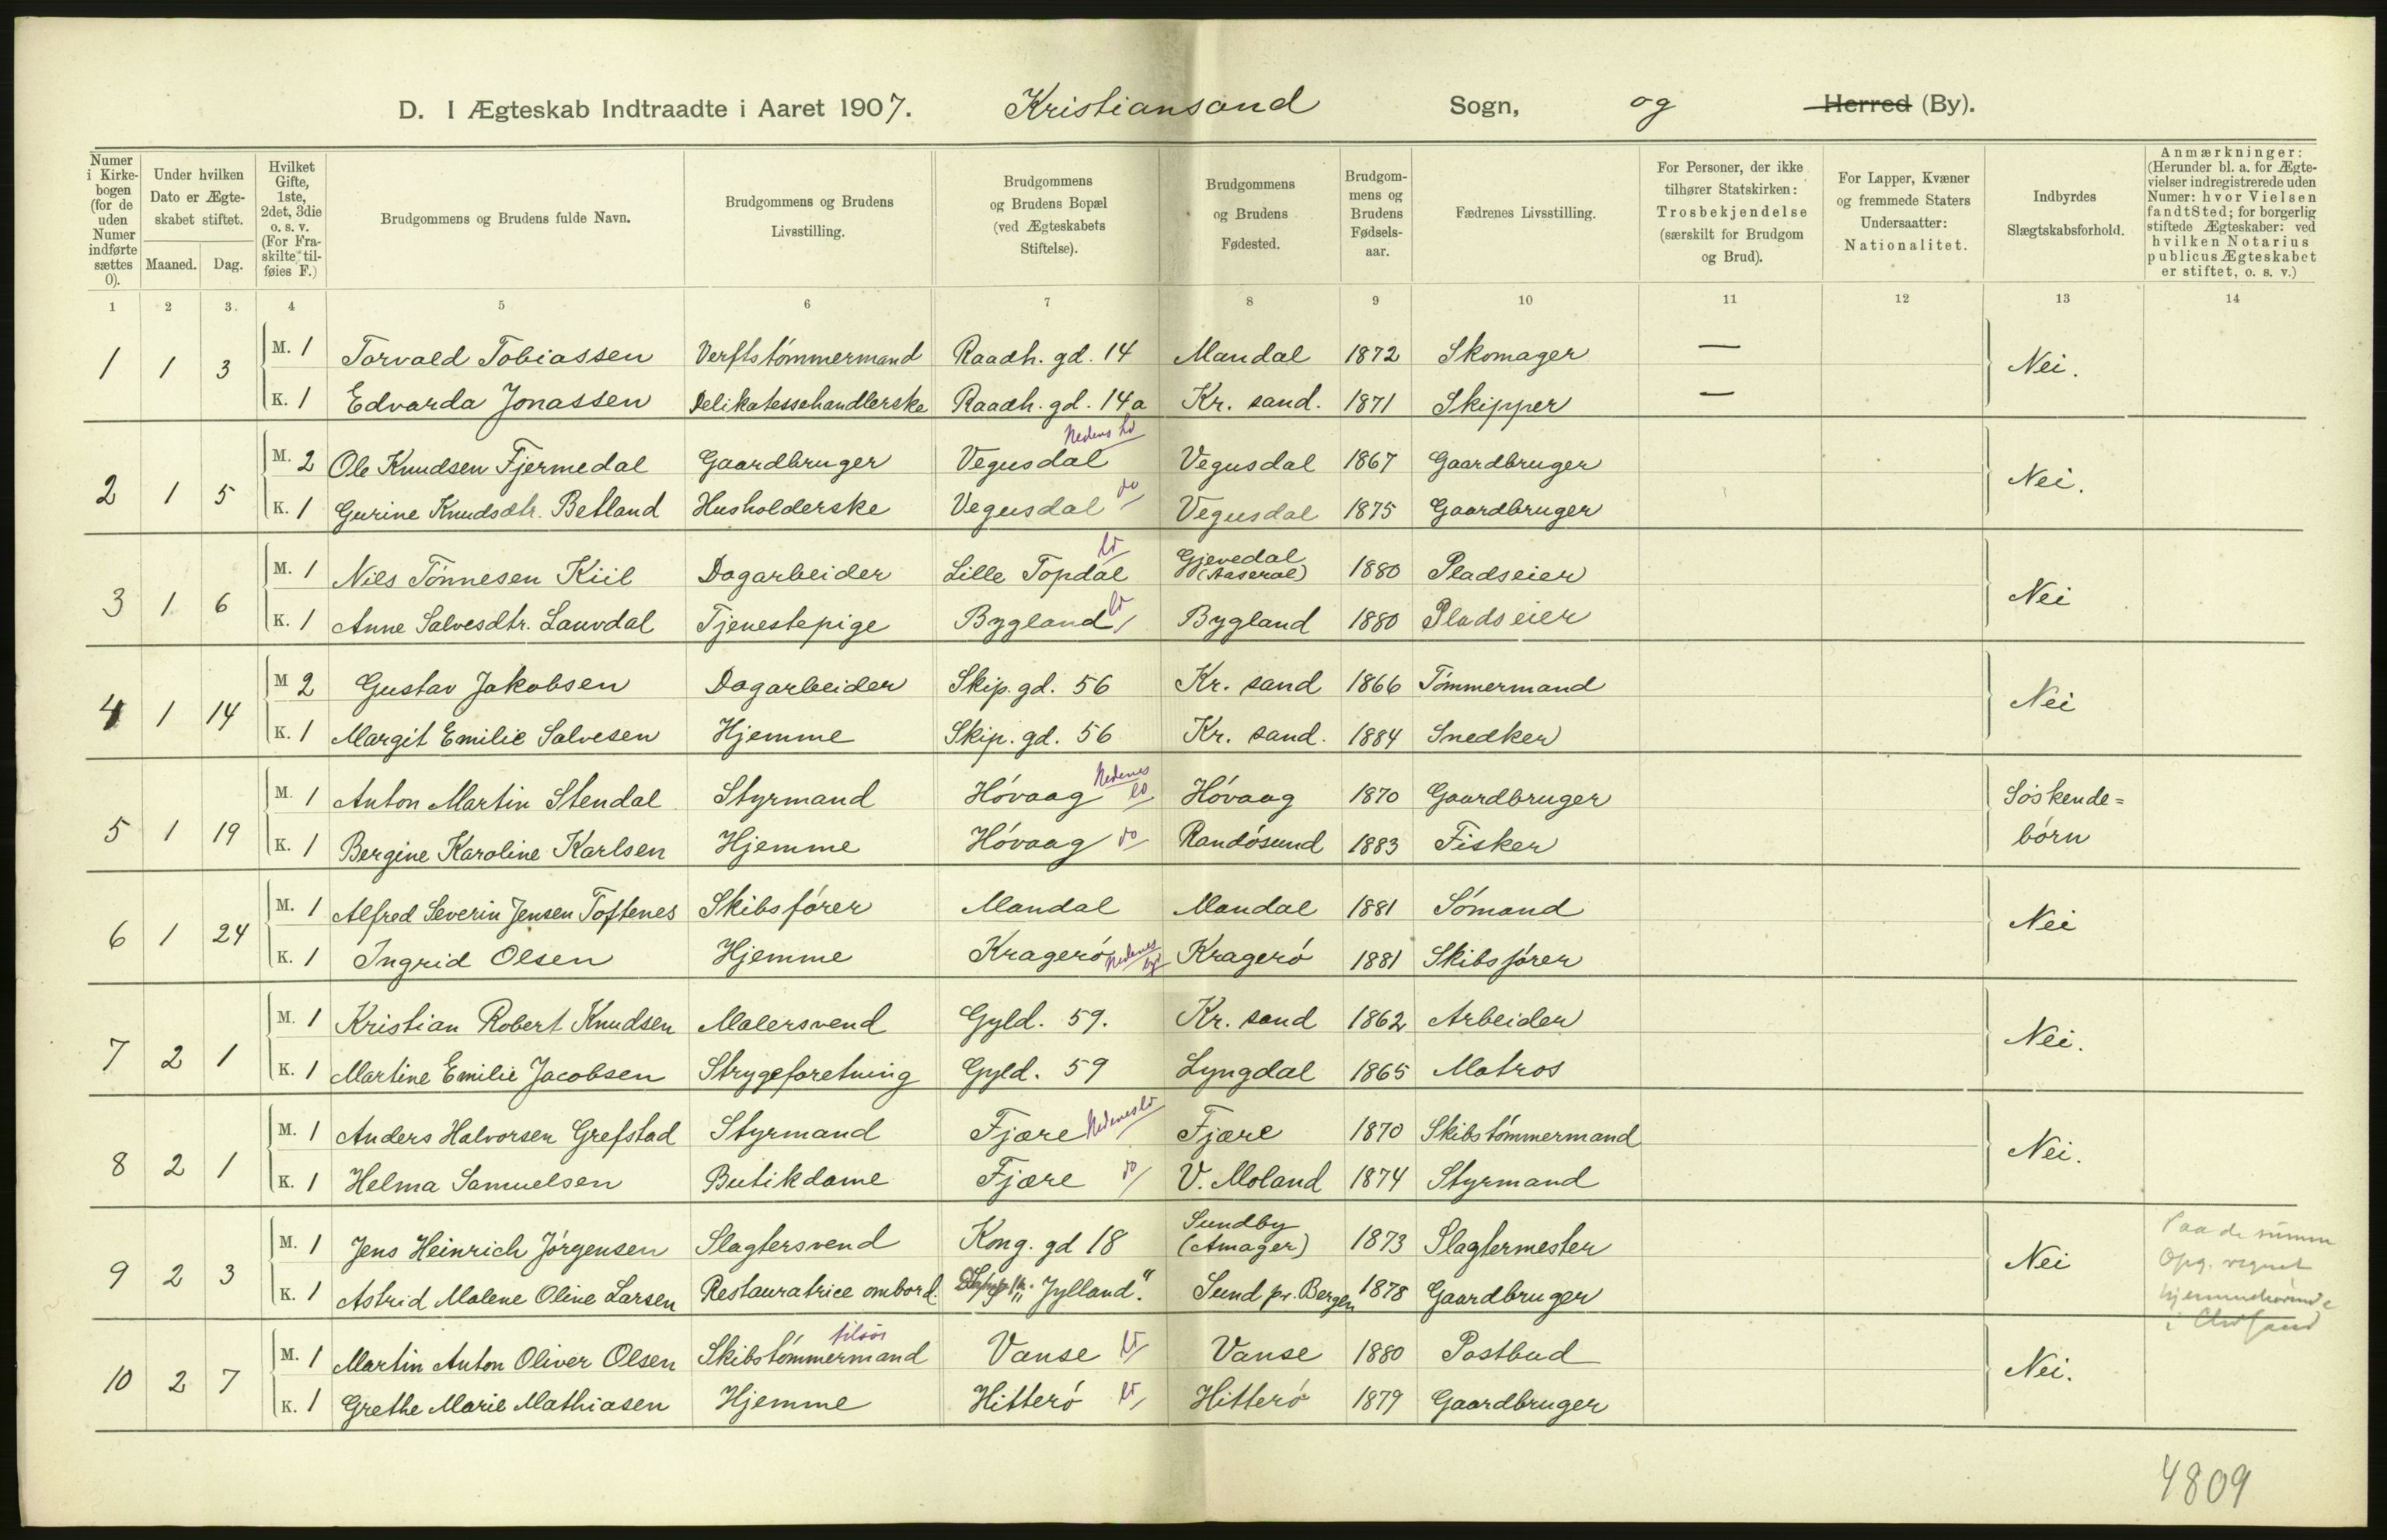 D. I Ægteskab Indtraadte i Aaret 1907. Kristiansand Sogn, og Herred (By).
Numer i Kirkebogen (for de uden Numer indførte sættes 0).
Under hvilken Dato er Ægteskabet stiftet.
Maaned. Dag.
Hvilket Gifte, 1ste, 2det, 3die o. s. v. (For Fraskilte tilføies F.)
Brudgommens og Brudens fulde Navn.
Brudgommens og Brudens Livsstilling.
Brudgommens og Brudens Bopæl (ved Ægteskabets Stiftelse).
Brudgommens og Brudens Fødested.
Brudgommens og Brudens Fødselsaar.
Fædrenes Livsstilling.
For Personer, der ikke tilhører Statskirken: Trosbekjendelse (særskilt for Brudgom og Brud).
For Lapper, Kvæner og fremmede Staters Undersaatter: Nationalitet.
Indbyrdes Slægtskabsforhold.
Anmærkninger: (Herunder bl. a. for Ægtevielser indregistrerede uden Numer: hvor Vielsen fandt Sted; for borgerlig stiftede Ægteskaber: ved hvilken Notarius publicus Ægteskabet er stiftet, o. s. v.)
1 2 3. 4 5 6 7 8 9 10 11 12 13 14
1 1 3 M. 1 Torvald Tobiassen Verftstömmermand Raadh. gd. 14 Mandal 1872 Skomager — Nei.
K. 1 Edvarda Jonassen Delikatessehandlerske Raadh. gd. 14a Kr. sand. 1871 Skipper —
2 1 5 M. 2 Ole Knudsen Fjermedal Gaardbruger Vegusdal Nedens ld Vegusdal 1867 Gaardbruger Nei.
K. 1 Gurine Knudsdtr. Betland Husholderske Vegusdal do Vegusdal 1875 Gaardbruger
3 1 6 M. 1 Niels Tönnesen Kiil Dagarbeider Lille Topdal ld Gjevedal (Aaseral) 1880 Pladseier Nei
K. 1 Anne Salvesdtr. Lauvdal Tjenestepige Bygland ld Bygland 1880 Pladseier
4 1 14 M 2 Gustav Jakobsen Dagarbeider Skip. gd. 56 Kr. sand 1866 Tömmermand Nei
K. 1 Margit Emilie Salvesen Hjemme Skip. gd. 56 Kr. sand. 1884 Snedker
5 1 19 M. 1 Anton Martin Stendal Styrmand Hövaag Nedenes ld Hövaag 1870 Gaardbruger Söskende=
K. 1 Bergine Karoline Karlsen Hjemme Hövaag do Randösund 1883 Fisker börn
6 1 24 M. 1 Alfred Severin Jensen Toftenes Skibsförer Mandal Mandal 1881 Sömand Nei
K. 1 Ingrid Olsen Hjemme Kragerö Nedenes Kragerö 1881 Skibsförer
7 2 1 M. 1 Kristian Robert Knudsen Malersvend Gyld. 59. Kr. sand 1862 Arbeider Nei.
K. 1 Martine Emilie Jacobsen Strygeforetning Gyld. 59 Lyngdal 1865 Matros
8 2 1 M. 1 Anders Halvorsen Grefstad Styrmand Fjære Nedenes ld Fjære 1870 Skibstömmermand Nei.
K. 1 Helma Samuelsen Butikdame Fjære do V. Moland 1874 Styrmand
9 2 3 M. 1 Jens Heinrich Jörgensen Slagtersvend Kong. gd 18 Sundby (Amager) 1873 Slagtermester Nei
K. 1 Astrid Malene Oline Larsen Restauratrice ombord „Jylland". Sund pr. Bergen 1878 Gaardbruger
10 2 7 M. 1 Martin Anton Oliver Olsen Skibstömmermand Vanse ld Vanse 1880 Postbud Nei.
K. 1 Grethe Marie Mathiasen Hjemme Hitterö ld Hitterö 1879 Gaardbruger
4809